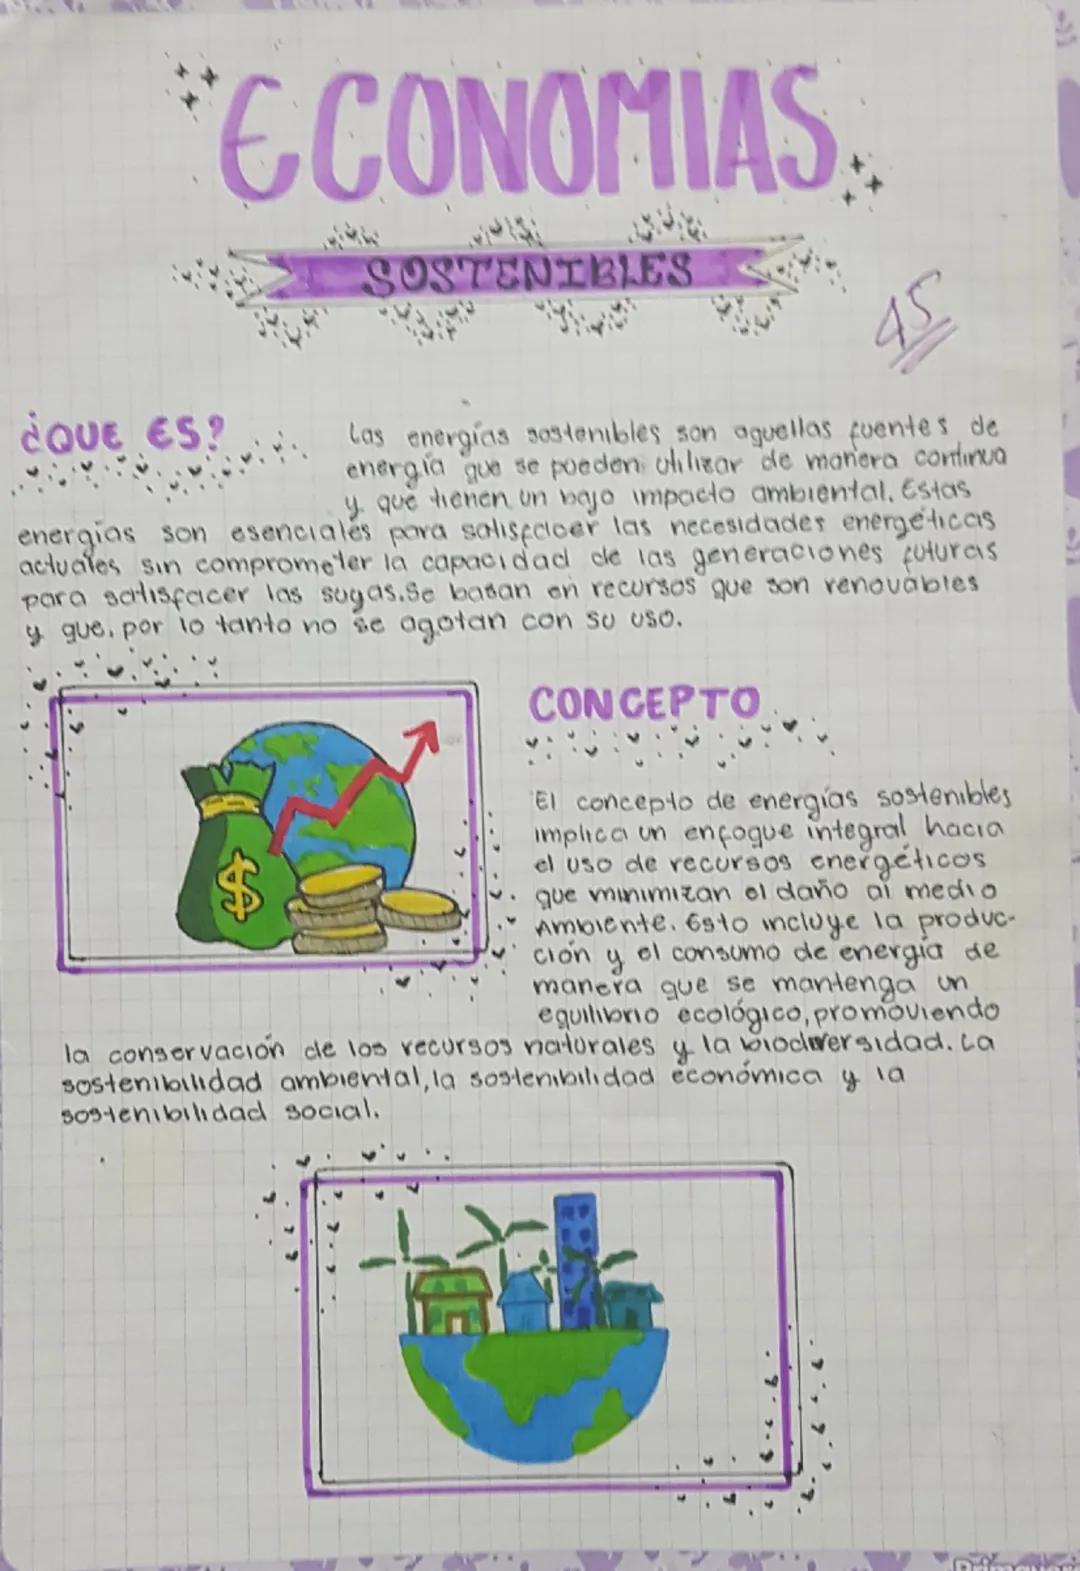 ECONOMIAS
SOSTENIBLES
45
¿QUE ES?
Las energías sostenibles son aquellas fuentes de
energía que se pueden utilizar de manera continua
y que tienen un bajo impacto ambiental. Estas
energías son esenciales para satisfacer las necesidades energéticas
actuales sin comprometer la capacidad de las generaciones futuras
para satisfacer las suyas. Se basan en recursos que son renovables
y que, por lo tanto no se agotan con su uso.
CONCEPTO
El concepto de energías sostenibles
implica un enfoque integral hacia
el uso de recursos energéticos
que minimizan el daño al medio
Ambiente. Esto incluye la produc-
ción y el consumo de energía de
manera que se mantenga un
equilibrio ecológico, promoviendo
la conservación de los recursos naturales y la biodiversidad. La
sostenibilidad ambiental, la sostenibilidad económica y la
sostenibilidad social.
$